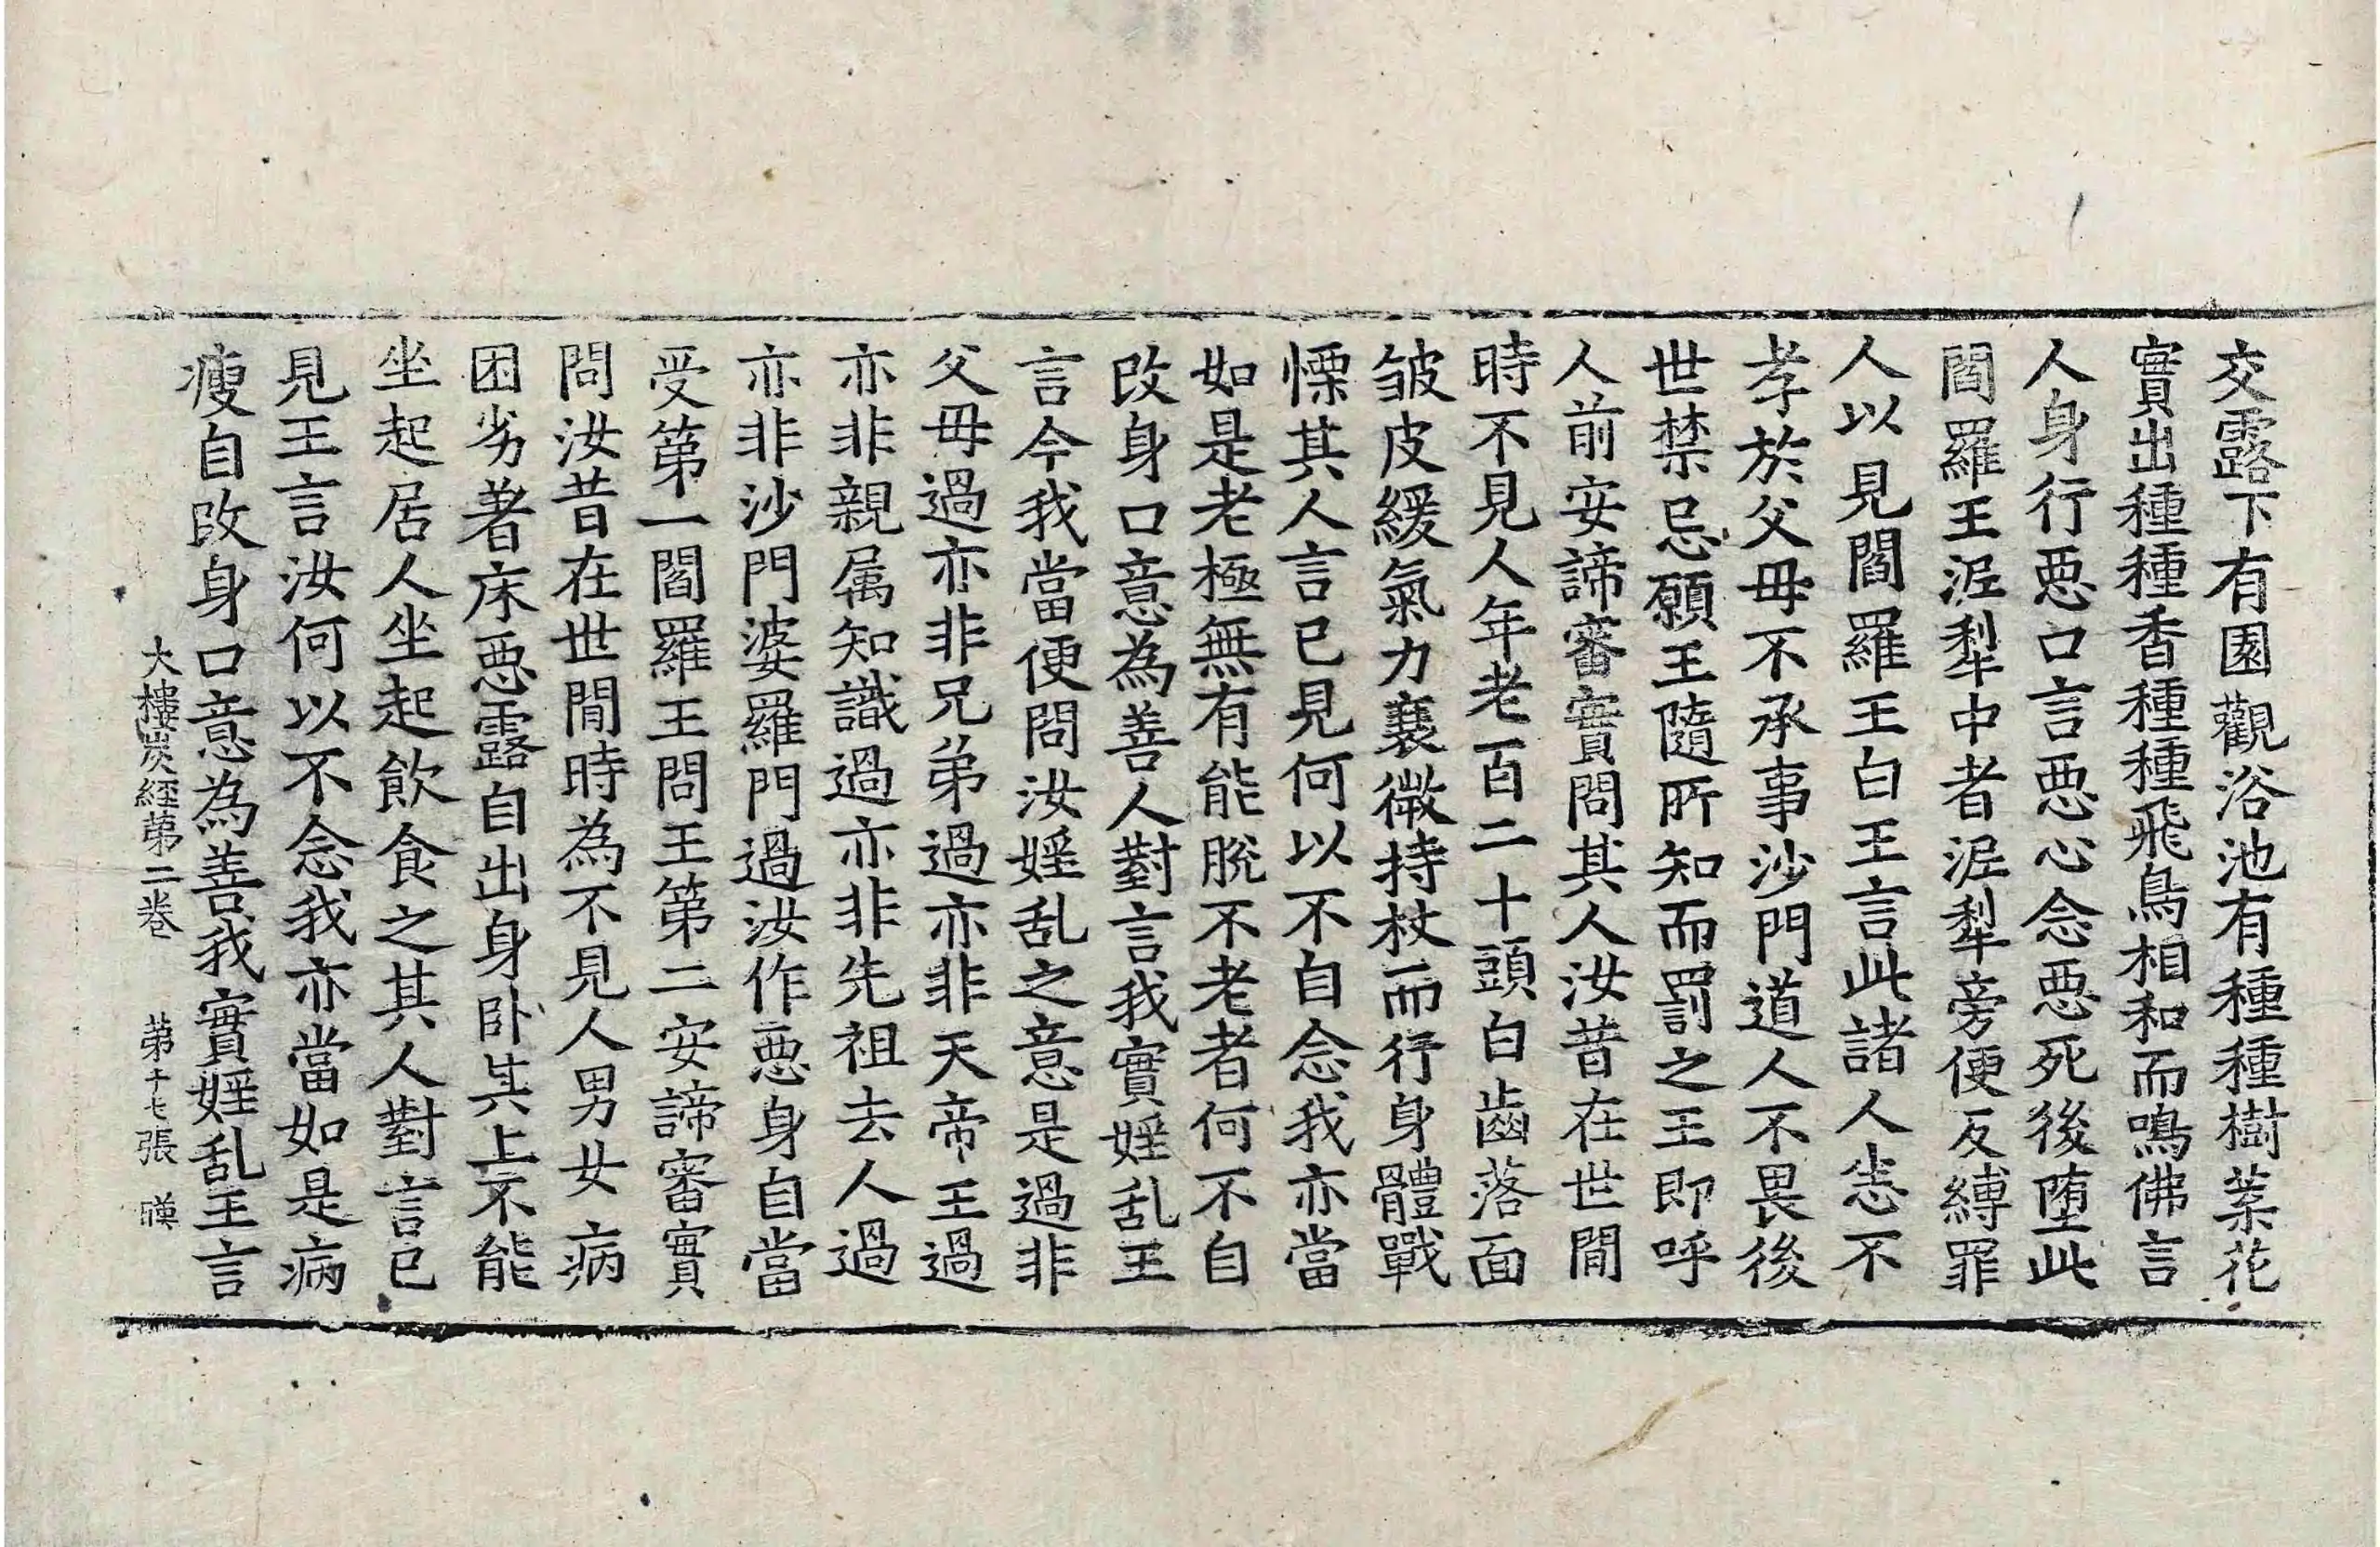 交露下有園觀浴池有種種樹葉花
實出種種香種種飛鳥相和而鳴佛言
人身行惡口言惡心念惡死後堕此
閻羅王泥犁中者泥犁旁便反縛罪
人以見閻羅王白王言此諸人恙不
孝於父母不承事沙門道人不畏後
世禁忌願王隨所知而罰之王即呼
人前安諦審實問其人汝昔在世間
時不見人年老百二十頭白齒落面
皱皮緩氣力衰微持杖而行身體戰
慄其人言已見何以不自念我亦當
如是老極無有能脫不老者何不自
改身口意為善人對言我實婬乱王
言今我當便問汝婬乱之意是過非
父母過亦非兄弟過亦非天帝王過
亦非親属知識過亦非先祖去人過
亦非沙門婆羅門過汝作惡身自當
受第一閻羅王問王第二安諦審實
問汝昔在世間時為不見人男女病
困劣著床惡露自出身卧其上不能
坐起居人坐起飲食之其人對言已
見王言汝何以不念我亦當如是病
瘦自改身口意為善我實婬乱王言
大樓炭經第二卷 第十七張 暎